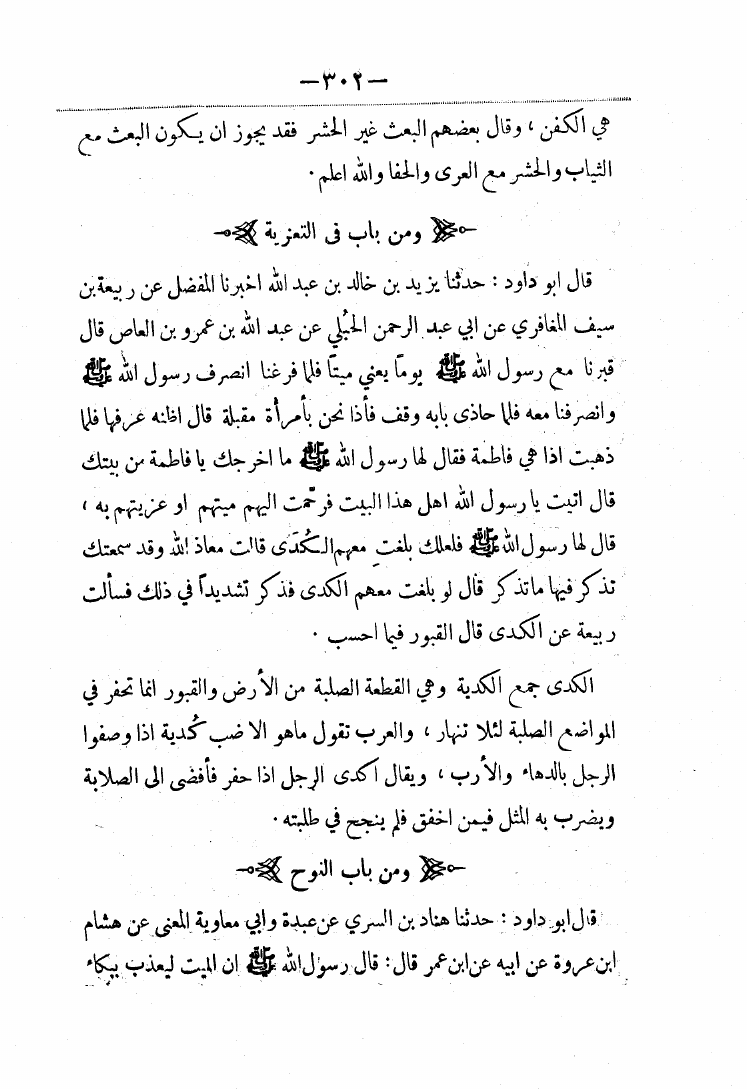 —٣٠٢—
هي الكفن ، وقال بعضهم البعث غير الحشر فقد يجوز ان يكون البعث مع
الثياب والحشر مع العرى والحفا والله اعلم .
ومن باب في التعزية
قال ابو داود : حدثنا يزيد بن خالد بن عبد الله اخبرنا المفضل عن ربيعة بن
سيف المغافري عن ابي عبد الرحمن الحُبُلي عن عبد الله بن عمرو بن العاص قال
قبرنا مع رسول الله ﷺ يوماً يعني ميتاً فلما فرغنا انصرف رسول الله ﷺ
وانصرفنا معه فلما حاذى بابه وقف فأذا نحن بأمرأة مقبلة قال اظنه عرفها فلما
ذهبت اذا هي فاطمة فقال لها رسول الله ﷺ ما اخرجك يا فاطمة من بيتك
قال اتيت يا رسول الله اهل هذا البيت فرحّمت اليهم ميتهم او عزيتهم به ،
قال لها رسول الله ﷺ فلعلك بلغتِ معهم الكُدَى قالت معاذ الله وقد سمعتك
تذكر فيها ماتذكر قال لو بلغت معهم الكدى فذكر تشديداً في ذلك فسألت
ربيعة عن الكدى قال القبور فيما احسب .
الكدى جمع الكدية وهي القطعة الصلبة من الأرض والقبور انما تحفر في
المواضع الصلبة لئلا تنهار ، والعرب تقول ماهو الا ضب كُدية اذا وصفوا
الرجل بالدهاء والأرب ، ويقال اكدى الرجل اذا حفر فأفضى الى الصلابة
ويضرب به المثل فيمن اخفق فلم ينجح في طلبته .
ومن باب النوح
قال ابو داود : حدثنا هناد بن السري عن عبدة وابي معاوية المعنى عن هشام
ابن عروة عن ابيه عن ابن عمر قال : قال رسول الله ﷺ ان الميت ليعذب ببكاء